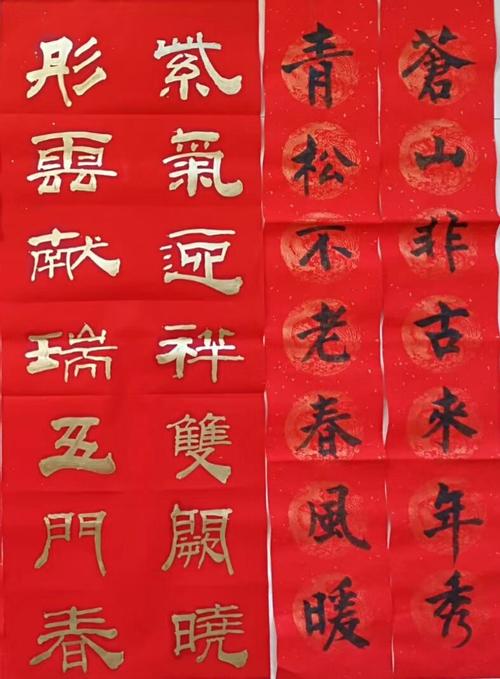 蒼山非古来年秀
青松不老春風暖
紫氣迎祥雙闕曉
彤雲献瑞五門春